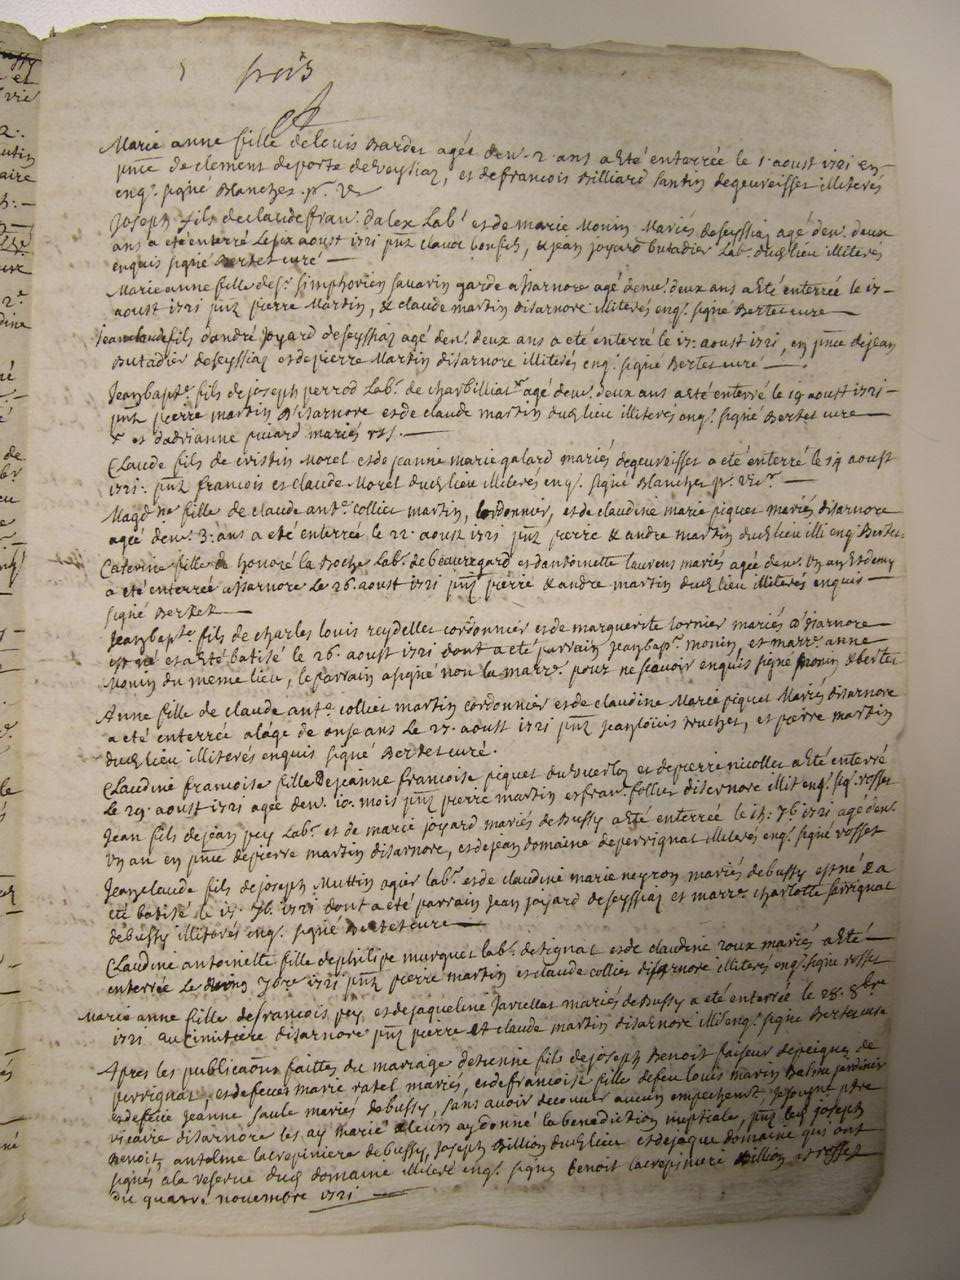 trois
Marie anne fille de louis Bardet agée denv. 2. ans a eté enterrée le 1. aoust 1721 en
pnce de clement deporte deveyssiaz, et de francois Billiard santin degeureisset illiterés
enq. signé Blanchet pr. vre
Joseph fils de claude fran. dalex Labr. et de marie Monin Mariés de seyssiaz agé denv. deux
ans a eté enterré Le six aoust 1721 pnt claude bonfils, & jean joyard butadier Labr. dud. lieu illiterés
enquis signé Bertet curé
Marie anne fille de sr. simphorien savarin garde a isarnore agé denv. deux ans a eté enterrée le 17
aoust 1721 pnt pierre Martin, & claude martin disarnore illiterés enq. signé Bertet curé
Jean claude fils dandré joyard de seyssiaz agé denv. deux ans a eté enterré le 17. aoust 1721, en pnce de jean
Butadier de seyssiaz et de pierre Martin disarnore illiterés enq. signé Bertet curé
Jean bapte. fils de joseph perrod Labr. de charbilliat + agé denv. deux ans a eté enterré le 19 aoust 1721
pnt pierre martin disarnore et de claude martin dud. lieu illiterés enq. signé Bertet curé
+ et dadrianne puiard mariés
Claude fils de cristin Morel et de jeanne marie galard mariés degeureisset a eté enterré le 19 aoust
1721. pnt francois et claude Morel dud. lieu illiterés enq. signé Blanchet pr. vre.
Magdne. fille de claude ante. collier martin, cordonnier, et de claudine marie piquet mariés disarnore
agée denv. 3. ans a eté enterrée le 22. aoust 1721 pnt pierre & andre martin dud. lieu illi enq. Bertet
Caterine fille de honoré la Roche Labr. de beauregard et dantoinette laurens mariés agée denv. un an et demy
a eté enterrée a isarnore Le 26. aoust 1721 pnt pierre & andre martin dud. lieu illiterés enquis
signé Bertet
Jean bapte. fils de charles louis reydellet cordonnier et de marguerite tornier mariés disarnore
est né et a eté batisé le 26. aoust 1721 dont a eté parrain jean bapt. monin, et marre. anne
Monin du meme lieu, le parrain a signé non la marre. pour ne scavoir enquis signé monin & bertet
Anne fille de claude ante. collier martin cordonnier et de claudine Marie piquet Mariés disarnore
a eté enterrée a lage de onse ans Le 27. aoust 1721 pnt jean louis truchet, et pierre martin
dud. lieu illiterés enquis signé Bertet curé.
Claudine francoise fille de jeanne francoise piquet et de pierre nicollet a eté enterré
Le 29. aoust 1721 agée denv. 10. mois pnt pierre martin et fran. collier disernore illit enq. sig. rosset
Jean fils de jean pey Labr. et de marie joyard mariés de Bussy a eté enterrée le 14. 7b. 1721 agé denv.
un an en pnce de pierre martin disarnore, et de jean domaine deperrignat illiterés enq. signé rosset
Jean claude fils de joseph Muttin agier labr. et de claudine marie neyron mariés debussy est né & a
eté batisé le 15. 7b. 1721 dont a eté parrain jean joyard de seyssiaz et marre. charlotte
debussy illiterés enq. signé Bertet curé
Claudine antoinette fille de philipe murquet labr. detignat et de claudine roux mariés a eté
enterrée Le 7bre 1721 pnt pierre martin et claude collier disarnore illiterés enq. signé rosset
Marie anne fille de francois pey, et de jaqueline Javellet mariés de Bussy a eté enterrée le 28. 8bre
1721 au cimitiere disarnore pnt pierre et claude martin disarnore illit enq. signé Bertet curé
Apres les publications faittes du mariage detienne fils de joseph Benoit faiseur depeignes de
perrignat, et de feue marie ratel mariés, et de francoise fille de feu louis marin Batine jardinier
et de feue jeanne saule mariés debussy, sans avoir decouver aucun empechent. je soussigné ptre
vicaire disarnore les ay marié & leurs ay donné la benediction nuptiale, pnt led. joseph
Benoit, antelme lacrepiniere de bussy, joseph Billion dud. lieu et de jaque domaine qui ont
signés a la reserve dud. domaine illiteré enq. signés benoit lacrepiniere billion et rosset
du quatre novembre 1721